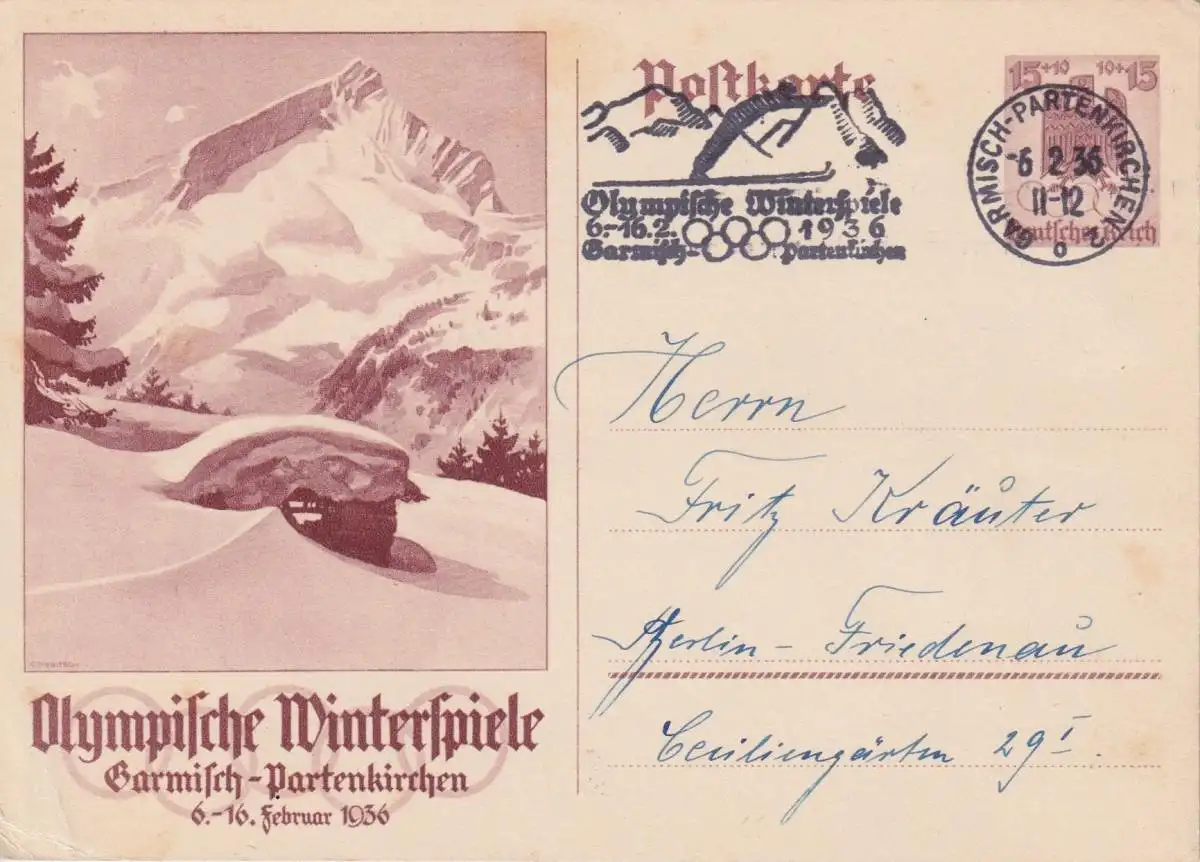 Postkarte
15+10 10+15
Deutsches Reich
GARMISCH-PARTENKIRCHEN 2
-6.2.36
11-12
o
Olympische Winterspiele
6.-16.2. 1936
Garmisch- Partenkirchen
Herrn
Fritz Kräuter
Berlin-Friedenau
Ceciliengärten 29 I.
Olympische Winterspiele
Garmisch-Partenkirchen
6.-16. Februar 1936